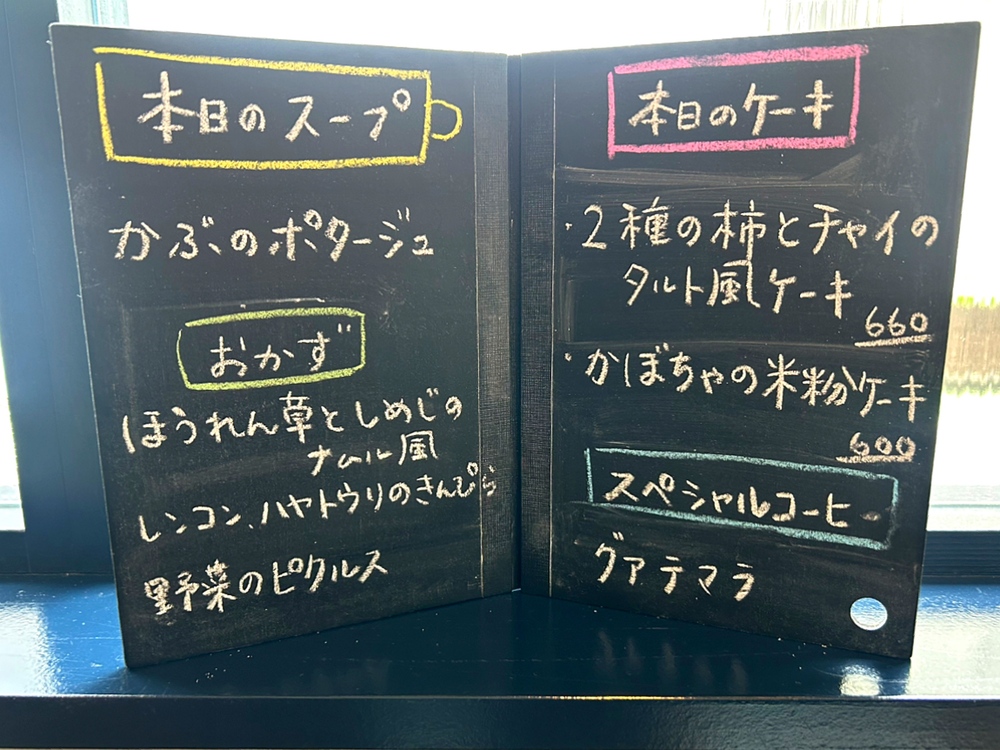 本日のスープ
かぶのポタージュ
おかず
ほうれん草としめじの
ナムル風
レンコン、ハヤトウリのきんぴら
野菜のピクルス
本日のケーキ
・2種の柿とチャイの
タルト風ケーキ
660
・かぼちゃの米粉ケーキ
600
スペシャルコーヒー
グァテマラ